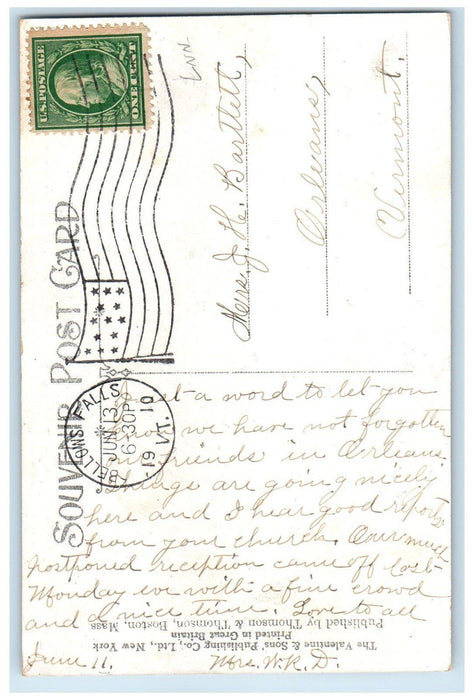 U.S. POSTAGE
ONE CENT
LNN
Mrs. J. H. Bartlett,
Orleans,
Vermont.
SOUVENIR POST CARD
BELLOWS FALLS
JUN 13
6 30P
19 VT. 10
Just a word to let you
know we have not forgotten
our friends in Orleans.
Things are going nicely
here and I hear good reports
from your church. Our much
postponed reception came off last
Monday eve with a fine crowd
and a nice time. Love to all
June 11. Mrs. W. R. D.
The Valentine & Sons' Publishing Co., Ltd., New York
Printed in Great Britain
Published by Thomson & Thomson, Boston, Mass